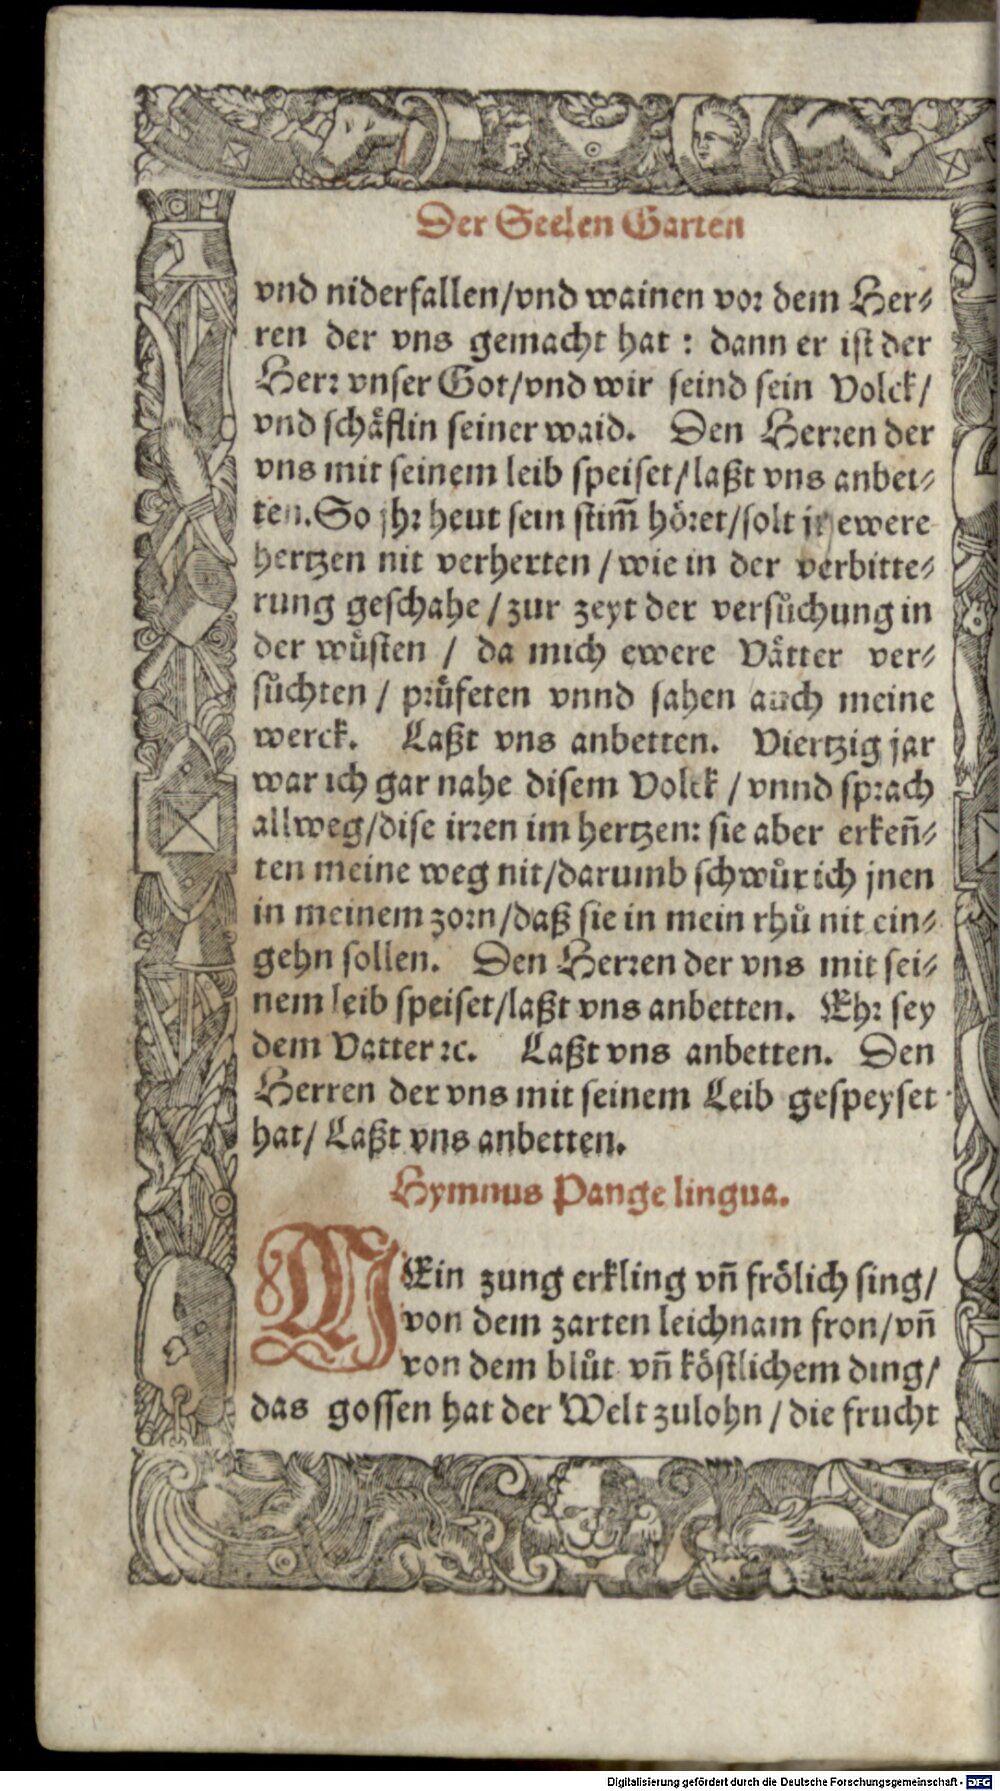 Der Seelen Garten
vnd niderfallen/vnd wainen vor dem Her⸗
ren der vns gemacht hat : dann er ist der
Herr vnser Got/vnd wir seind sein Volck/
vnd schäflin seiner waid. Den Herren der
vns mit seinem leib speiset/laßt vns anbet⸗
ten. So jhr heut sein stim̃ höret/solt jr ewere
hertzen nit verherten / wie in der verbitte⸗
rung geschahe / zur zeyt der versůchung in
der wüsten / da mich ewere Vätter ver⸗
sůchten / prüfeten vnnd sahen auch meine
werck. Laßt vns anbetten. Viertzig jar
war ich gar nahe disem Volck / vnnd sprach
allweg/dise irren im hertzen: sie aber erkeñ⸗
ten meine weg nit/darumb schwůr ich jnen
in meinem zorn/daß sie in mein rhů nit ein⸗
gehn sollen. Den Herren der vns mit sei⸗
nem leib speiset/laßt vns anbetten. Ehr sey
dem Vatter ꝛc. Laßt vns anbetten. Den
Herren der vns mit seinem Leib gespeyset
hat/ Laßt vns anbetten.
Hymnus Pange lingua.
MEin zung erkling vñ frölich sing/
von dem zarten leichnam fron/vñ
von dem blůt vñ köstlichem ding/
das gossen hat der Welt zulohn / die frucht
Digitalisierung gefördert durch die Deutsche Forschungsgemeinschaft - DFG